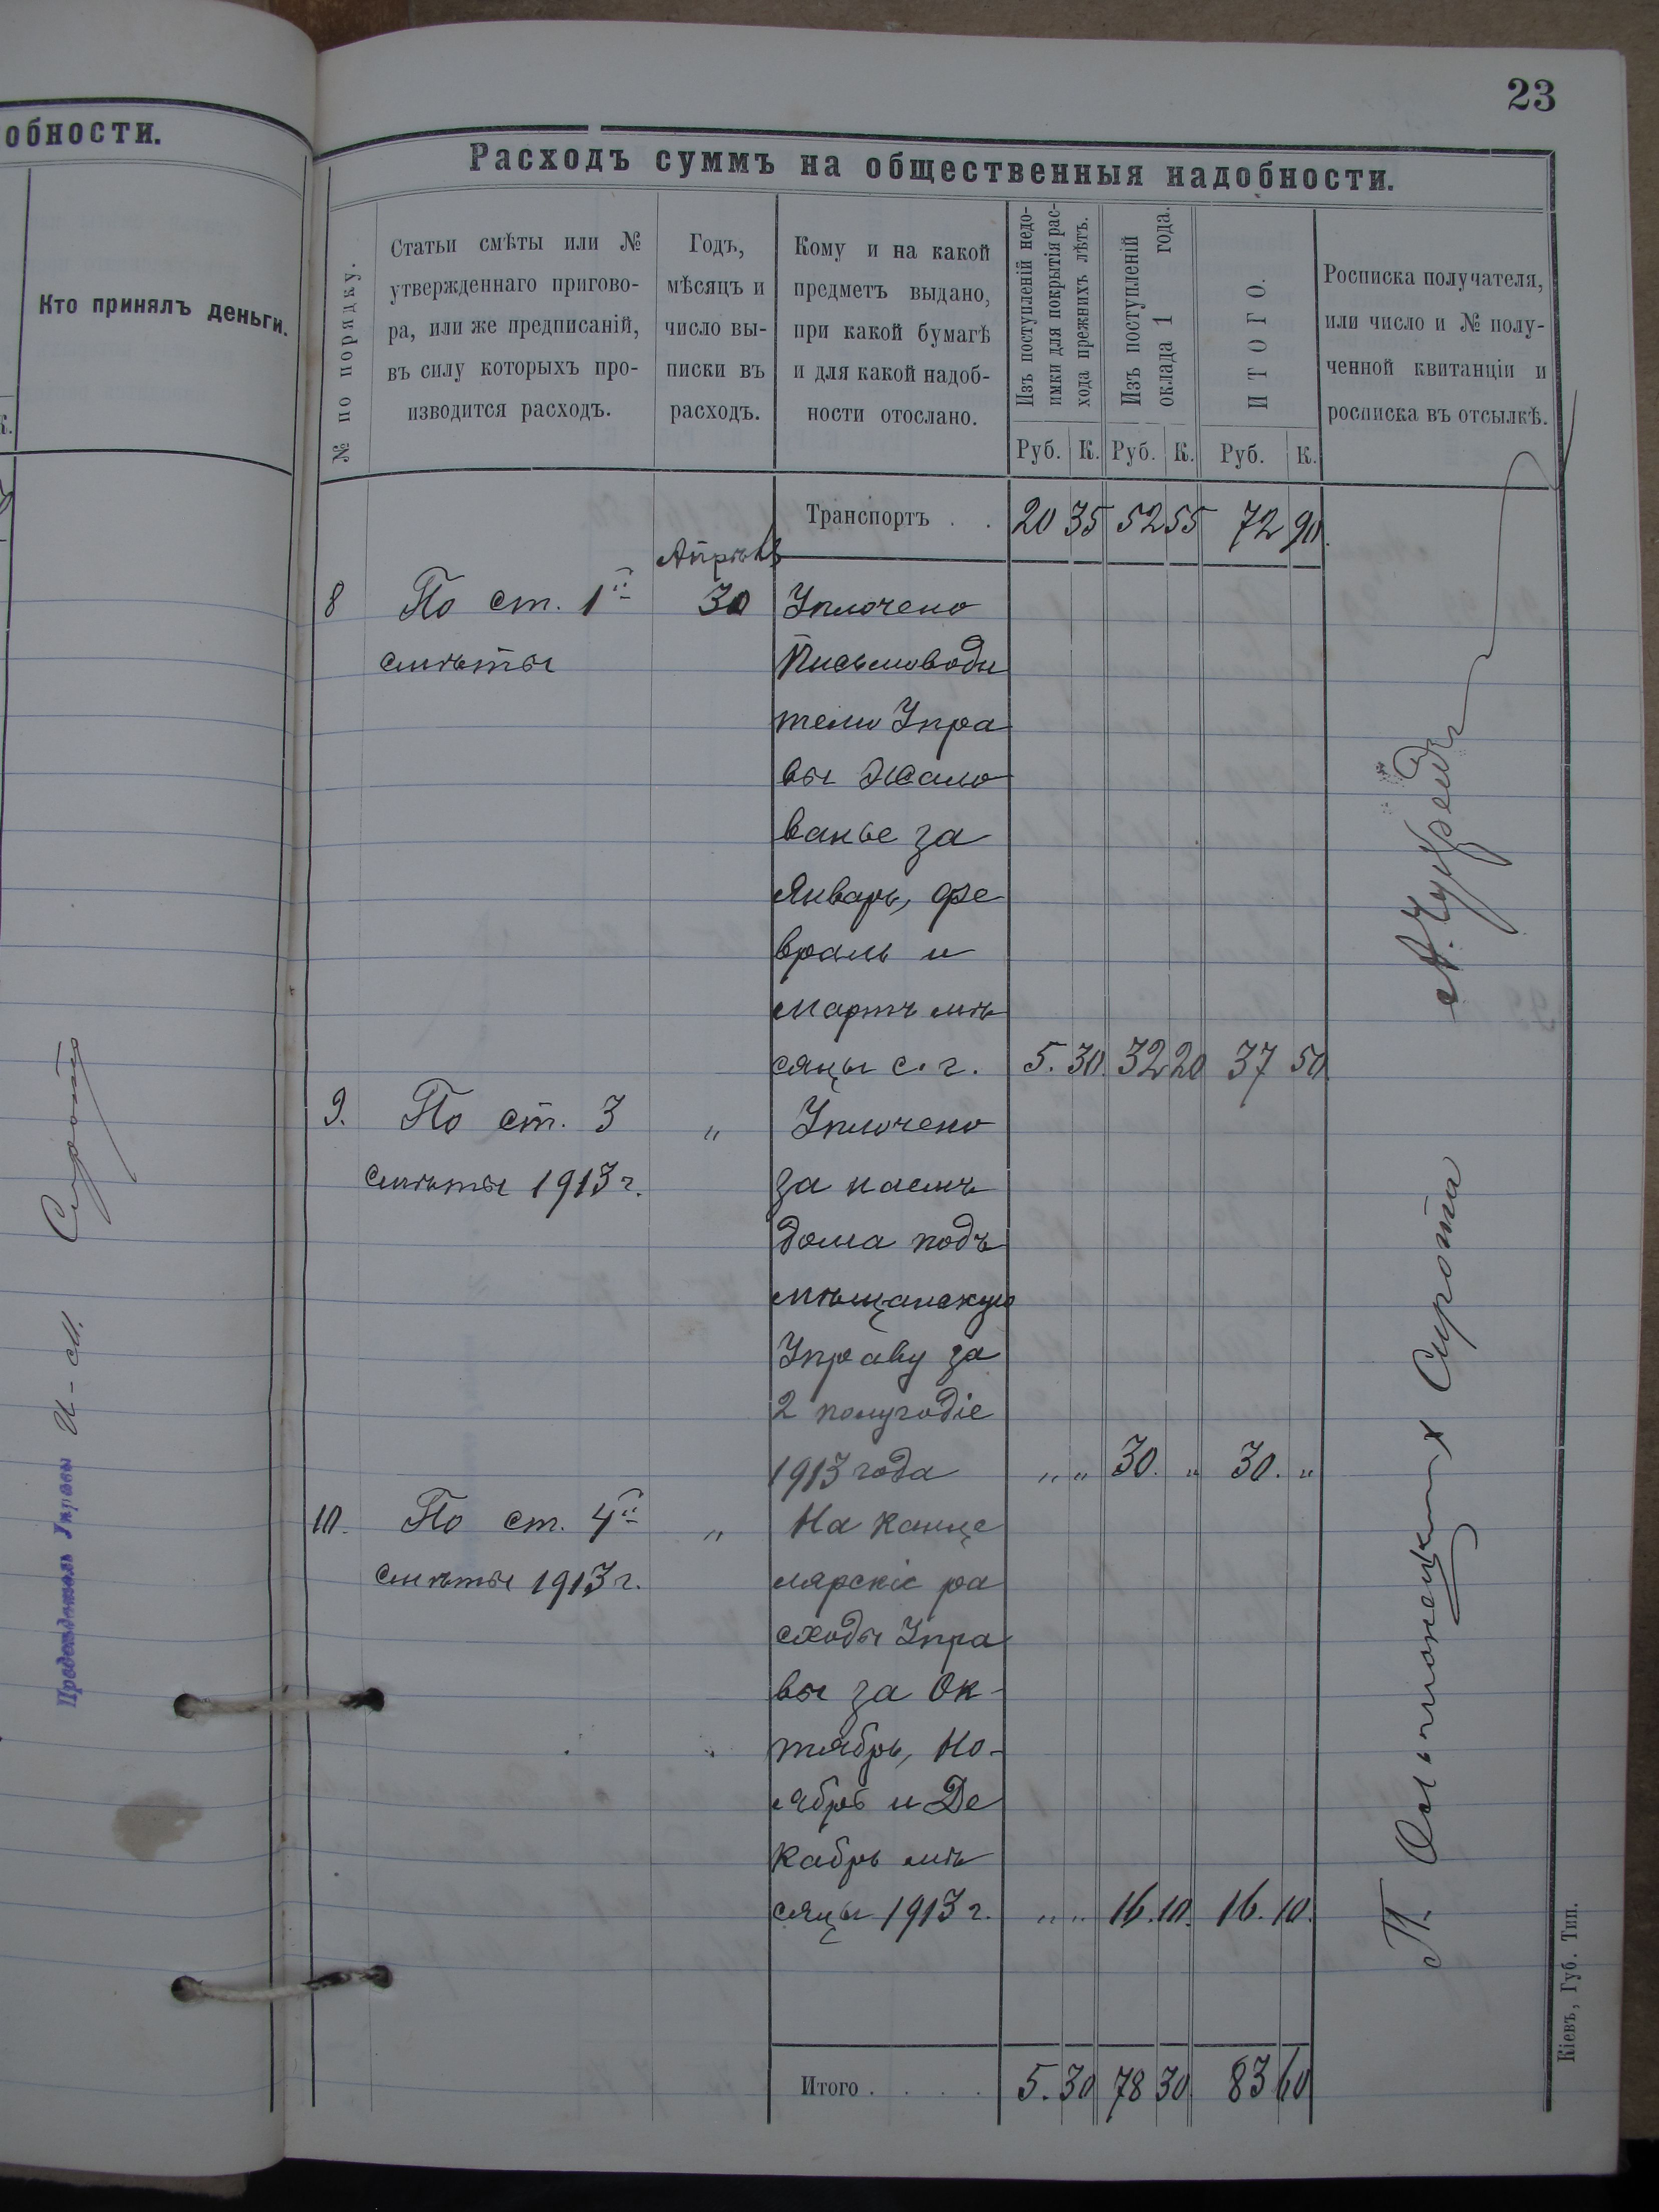 обности.
Кто принялъ деньги.
К.
Предсѣдатель Управы И-М. Сирота
23
Расходъ суммъ на общественныя надобности.
№ по порядку.
Статьи смѣты или №
утвержденнаго пригово-
ра, или же предписаній,
въ силу которыхъ про-
изводится расходъ.
Годъ,
мѣсяцъ и
число вы-
писки въ
расходъ.
Кому и на какой
предметъ выдано,
при какой бумагѣ
и для какой надоб-
ности отослано.
Изъ поступленій недо-
имки для покрытія рас-
хода прежнихъ лѣтъ.
Изъ поступленій
оклада 1 года.
ИТОГО.
Росписка получателя,
или число и № полу-
ченной квитанціи и
росписка въ отсылкѣ.
Руб. К. Руб. К. Руб. К.
Транспортъ . . 20 35 52 55 72 90.
Апрѣль
8 По ст. 1й 30 Уплочено
смѣты Письмоводи
телю Упра
вы Жало
ванье за
Январь, Фе
враль и
Мартъ мѣ
сяцы с. г. 5. 30. 32 20 37 50.
9. По ст. 3 " Уплочено
смѣты 1913 г. за наемъ
дома подъ
мѣщанскую
Управу за
2 полугодіе
1913 года " " 30. " 30. "
10. По ст. 4й " На канце
смѣты 1913 г. лярскіе ра
сходы Упра
вы за Ок-
тябрь, Но-
ябрь и Де
кабрь мѣ
сяцы 1913 г. " " 16. 10. 16. 10.
Итого . . . . 5. 30 78 30. 83 60
А.
П.
Сирота
Кіевъ, Губ. Тип.